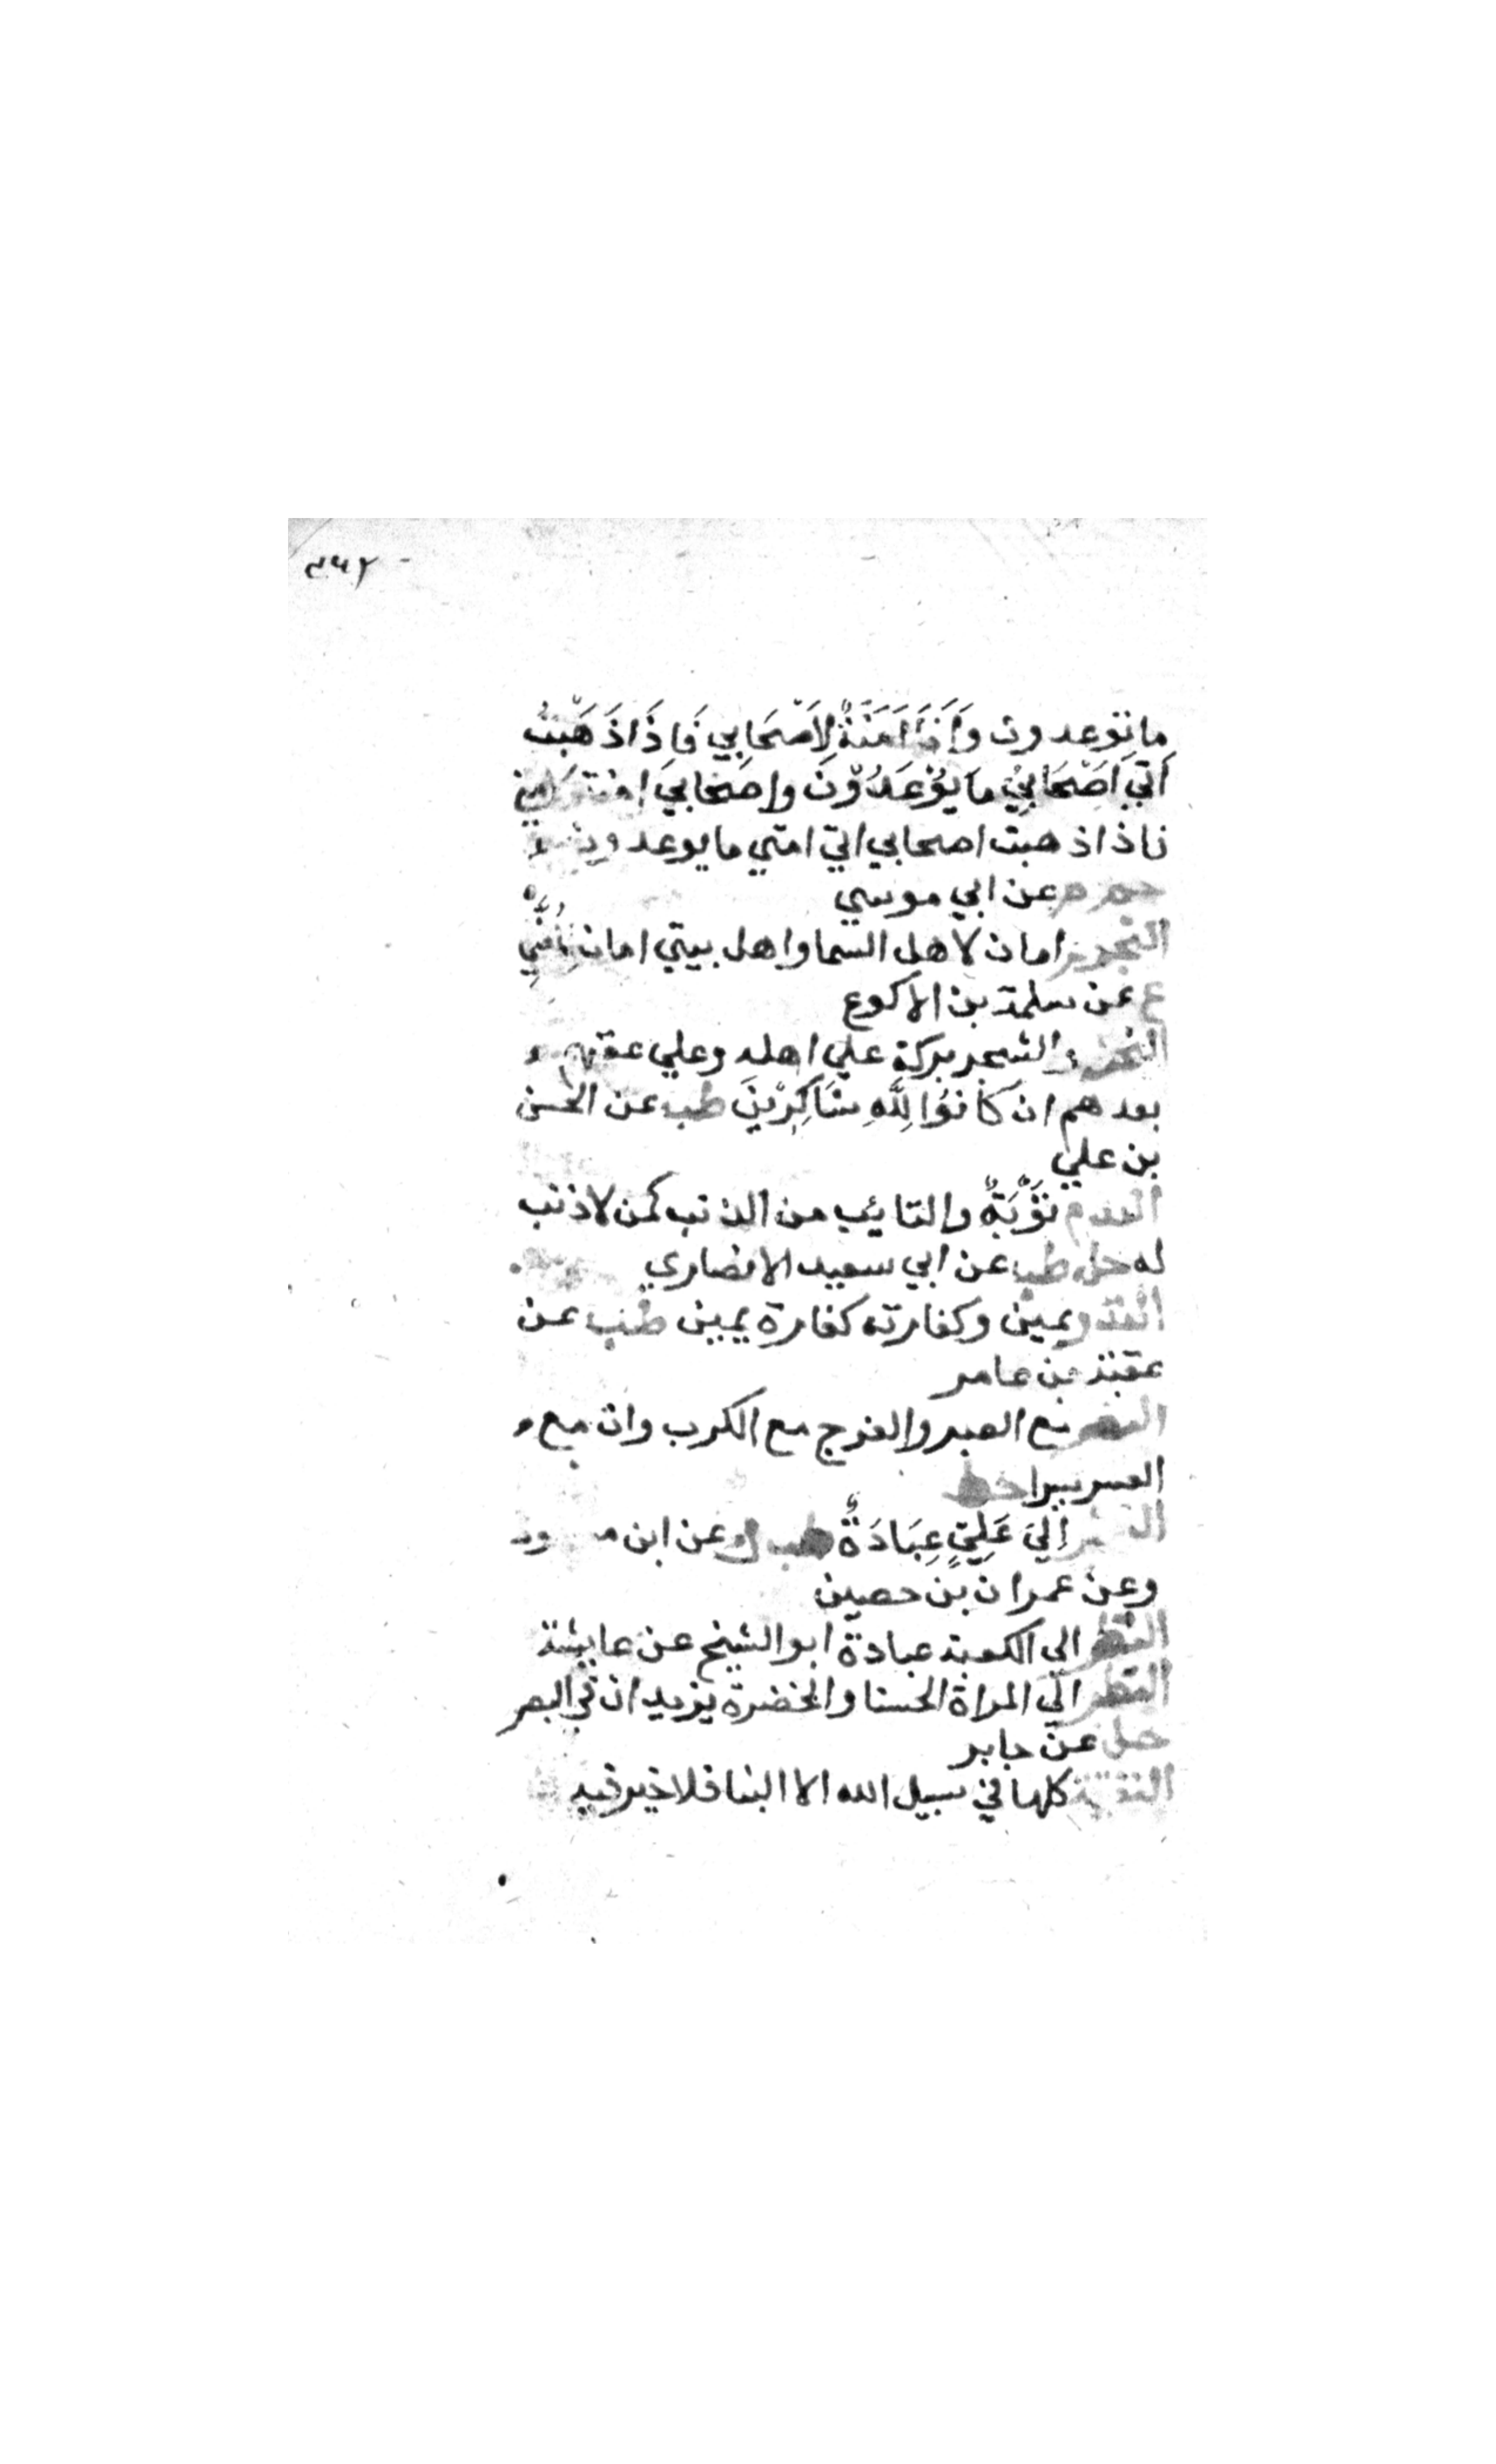 ما توعدون وَأَنَا أَمَنَةٌ لِأَصْحَابِي فَإِذَا ذَهَبْتُ
أَتَى أَصْحَابِي مَا يُوْعَدُوْنَ وإصحابي امنة لامتي
فاذا ذهبت اصحابي اتي امتي ما يوعدون
حم م عن ابي موسي
النجوم امان لاهل السما واهل بيتي امان لأمتي
ع عن سلمة بن الاكوع
النخل والشجر بركة علي اهله وعلي عقبهم
بعدهم ان كَانُوْا لِلَّهِ شَاكِرِيْنَ طب عن الحسن
بن علي
الندم تَوْبَةٌ والتايب من الذنب كمن لا ذنب
له حل طب عن ابي سعيد الانصاري
النذر يمين وكفارته كفارة يمين طب عن
عقبة بن عامر
النصر مع الصبر والفرج مع الكرب وان مع
العسر يسرا خط
النظر إِلَيَ عَلِيٍّ عِبَادَةٌ طب ك عن ابن مسعود
وعن عمران بن حصين
النظر الي الكعبة عبادة ابو الشيخ عن عايشة
النظر الي المراة الحسنا والخضرة يزيدان في البصر
حل عن جابر
النفقة كلها في سبيل الله الا البنا فلا خير فيه